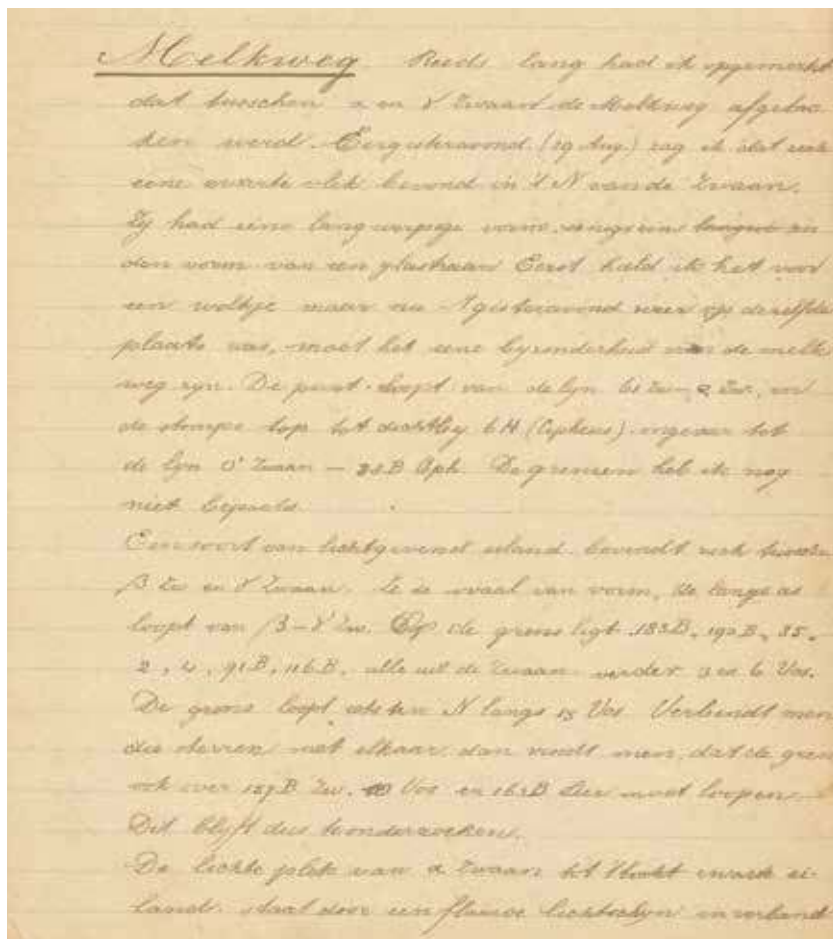 Melkweg Reeds lang had ik opgemerkt
dat tusschen α en γ Zwaan de Melkweg afgebro
ken werd. Eergisteravond (19 Aug.) zag ik dat zich
eene zwarte vlek bevond in 't N van de Zwaan.
Zy had eene langwerpige vorm,
den vorm van een Eerst hield ik het voor
een wolkje maar nu 't gisteravond weer op dezelfde
plaats was, moet het eene byzonderheid van de melk
weg zyn. De punt loopt van de lyn 61 Zw – α Zw. en
de stompe top tot dichtby 6 H (Cepheus) ongeveer tot
de lyn Zwaan – Cph. De grenzen heb ik nog
niet bepaald.
Een soort van lichtgevend eiland bevindt zich tusschen
β Zw en γ Zwaan. Ze is ovaal van vorm, de lange as
loopt van β – γ Zw. Op de grens ligt 183B, 190B, 35,
2, 4, 91B, 116B, alle uit de Zwaan verder 3 en 6 Vos.
De grens loopt ten N langs 15 Vos Verbindt men
die sterren met elkaar dan vindt men, dat de grens
ook over 159B Zw. 10 Vos en 162B Lier moet loopen.
Dit blyft dus te onderzoeken.
De lichte plek van α Zwaan tot 't zwarte ei-
land staat door een flauwe lichtschyn in verband